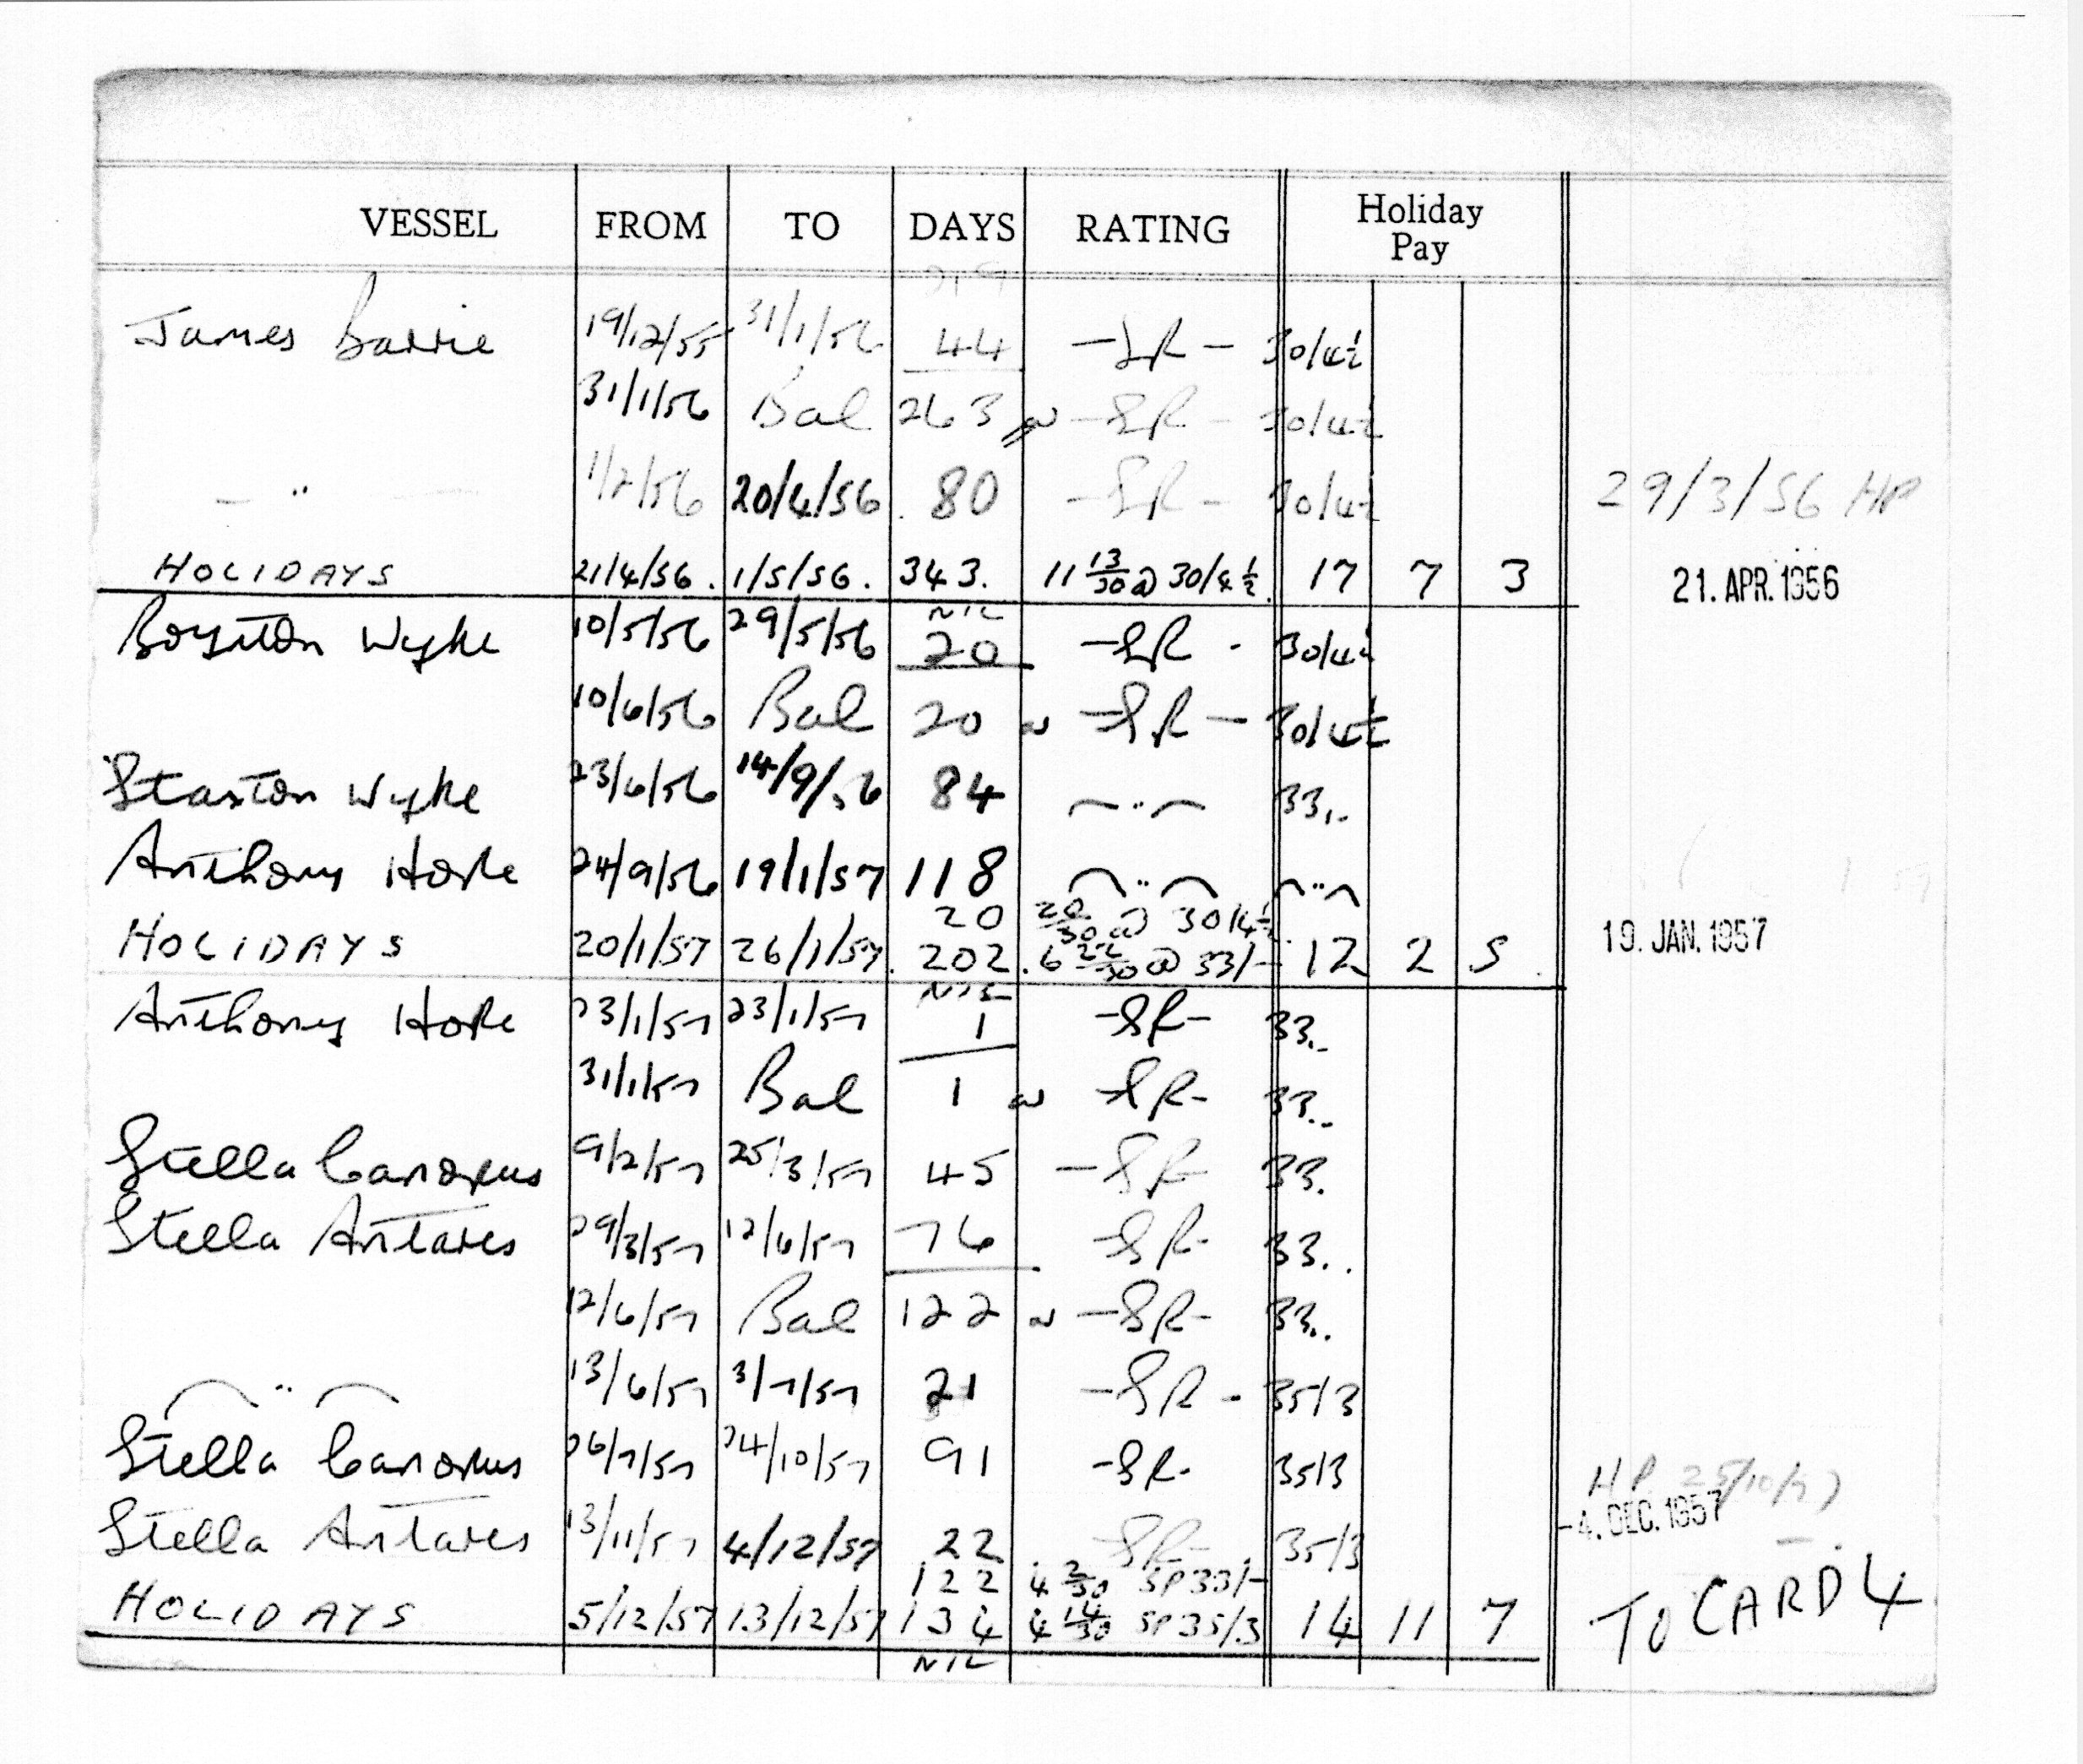 VESSEL FROM TO DAYS RATING Holiday Pay
James Barrie 19/12/55 31/1/56 44 - SR - 30/4½
31/1/56 Bal 263 @ - SR - 30/4½
— " — 1/2/56 20/4/56 80 - SR - 30/4½ 29/3/56 HP
HOLIDAYS 21/4/56. 1/5/56. 343. 11 13/30 @ 30/4½ 17 7 3 21. APR. 1956
NIL
Boynton Wyke 10/5/56 29/5/56 20 - SR - 30/4½
10/6/56 Bal 20 @ - SR - 30/4½
Staxton Wyke 23/6/56 14/9/56 84 — " — 33..
Anthony Hope 24/9/56 19/1/57 118 — " — — " —
20 20/30 @ 30/4½
HOLIDAYS 20/1/57 26/1/57 202. 6 22/30 @ 33/- 12 2 5 19. JAN. 1957
NIL
Anthony Hope 23/1/57 23/1/57 1 - SR - 33..
31/1/57 Bal 1 @ - SR - 33..
Stella Canopus 9/2/57 25/3/57 45 - SR - 33.
Stella Antares 29/3/57 12/6/57 76 - SR - 33..
12/6/57 Bal 122 @ - SR - 33..
— " — 13/6/57 3/7/57 21 - SR - 35/3
Stella Canopus 26/7/57 24/10/57 91 - SR - 35/3 HP 25/10/57
Stella Antares 13/11/57 4/12/57 22 - SR - 35/3 -4. DEC. 1957
122 4 2/30 SP 33/-
HOLIDAYS 5/12/57 13/12/57 134 4 14/30 SP 35/3 14 11 7 TO CARD 4
NIL